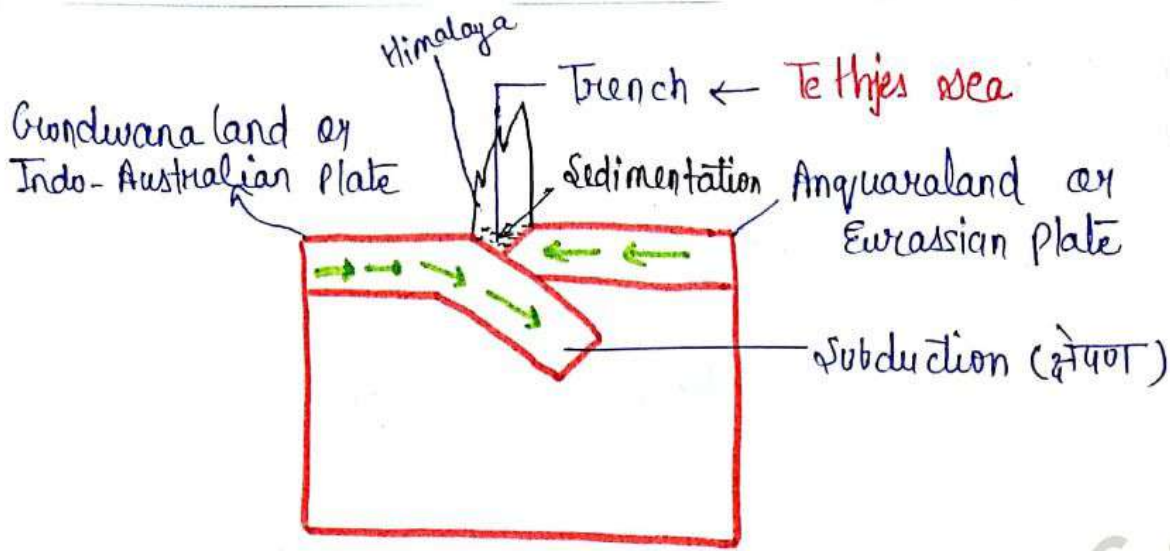 Himalaya
Trench ← Tethjes sea
Gondwana land or
Indo-Australian Plate
Sedimentation
Anquaraland or
Eurassian Plate
Subduction (क्षेपण)